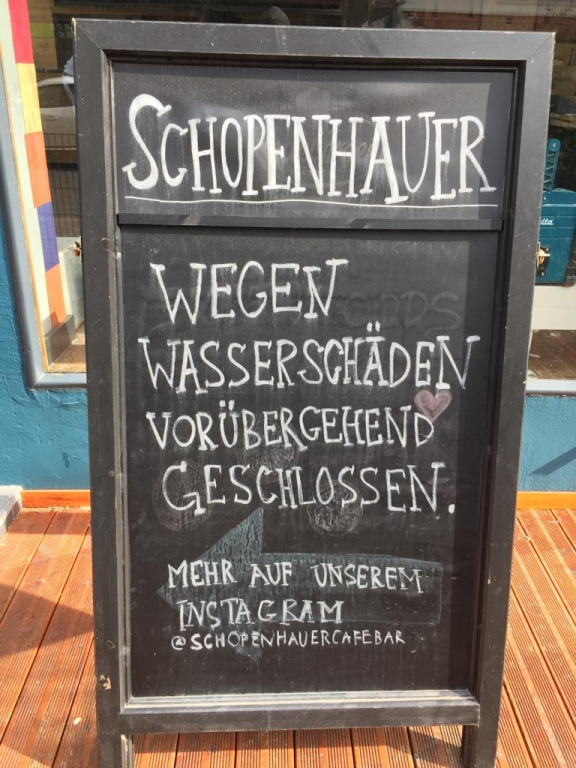 SCHOPENHAUER
WEGEN
WASSERSCHÄDEN
VORÜBERGEHEND
GESCHLOSSEN.
MEHR AUF UNSEREM
INSTAGRAM
@SCHOPENHAUERCAFEBAR